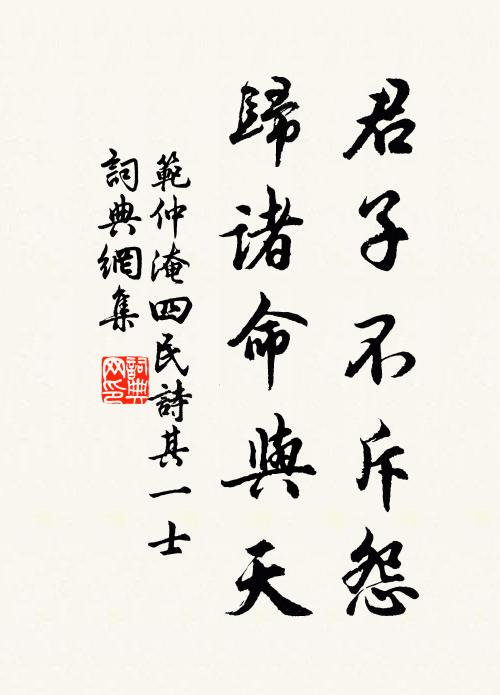 君子不斥怨
歸諸命與天
範仲淹四民詩其一士
詞典網集
詞典
网印